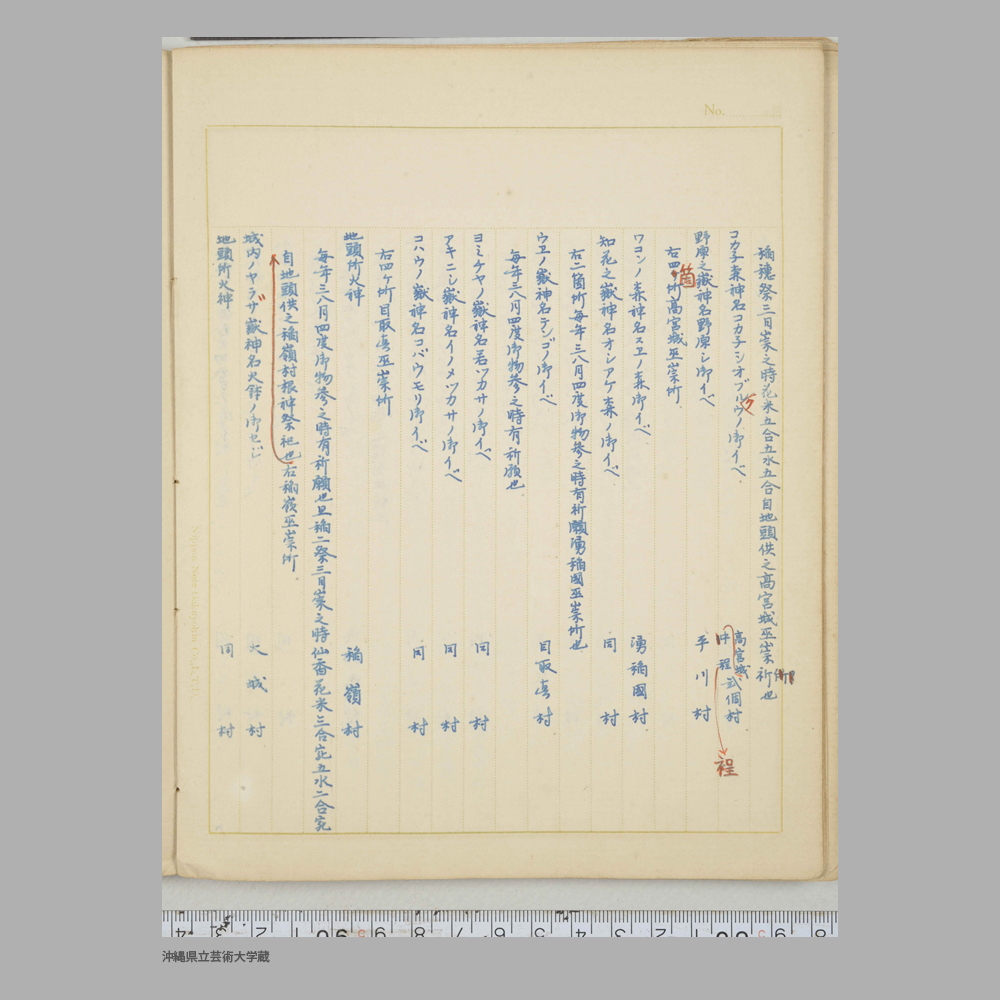 No.
稲穂祭三日崇之時花米五合五水五合自地頭供之高宮城巫崇祈也 所
コカ子森神名コカ子シオブルワノ御イベ 高宮城 仲程弐個村 程
野原之嶽神名野原シ御イベ 平川村
右四箇所高宮城巫崇所
ワコンノ森神名スヱノ森御イベ 湧稲國村
知花之嶽神名オシアケ森ノ御イベ 同村
右二箇所毎年三八月四度御物参之時有祈願湧稲國巫崇所也
ウヱノ嶽神名テンゴノ御イベ 目取真村
毎年三八月四度御物参之時有祈願也
ヨミチヤノ嶽神名若ツカサノ御イベ 同村
アキニシ嶽神名イノメツカサノ御イベ 同村
コハウノ嶽神名コバウモリ御イベ 同村
右四ケ所目取真巫崇所
地頭所火神 稲嶺村
毎年三八月四度御物参之時有祈願也且稲二祭三日崇之時仙香花米三合宛五水二合宛
自地頭供之稲嶺村根神祭祀也右稲嶺巫崇所
城内ノヤラザ嶽神名大鉾ノ御セジ 大城村
地頭所火神 同村
沖縄県立芸術大学蔵